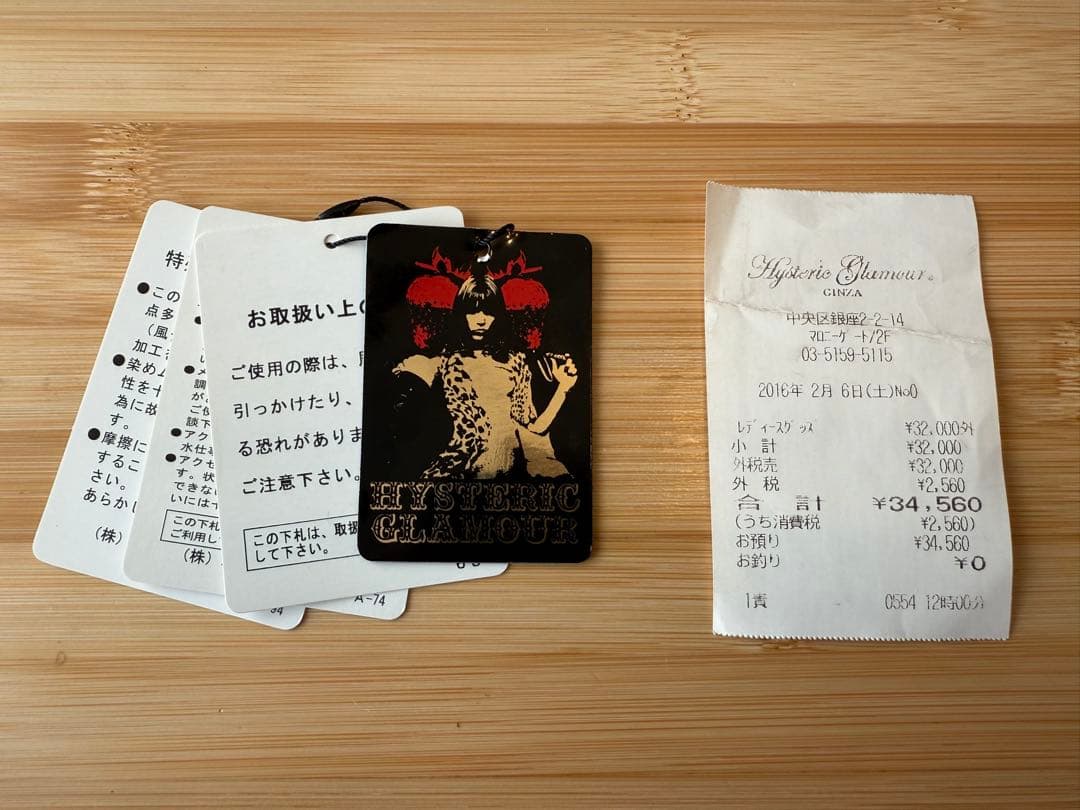 特
●この
点多
(風
加工
●染めム
性を十
為に故
す。
●摩擦に
するこ
さい。
あらかじ
(株)
94
調
がé
ご使
談下
●アク
水仕事
●アクセ
す。状
できな
いには十
この下札
ご利用し
(株)
A-74
お取扱い上の
ご使用の際は、
引っかけたり、
る恐れがありま
ご注意下さい。
この下札は、取扱
して下さい。
HYSTERIC
GLAMOUR
Hysteric Glamour.
GINZA
中央区銀座2-2-14
マロニーゲート/2F
03-5159-5115
2016年 2月 6日(土)No0
レディースグッズ ¥32,000外
小 計 ¥32,000
外税売 ¥32,000
外 税 ¥2,560
合 計 ¥34,560
(うち消費税 ¥2,560)
お預り ¥34,560
お釣り ¥0
1責 0554 12時00分